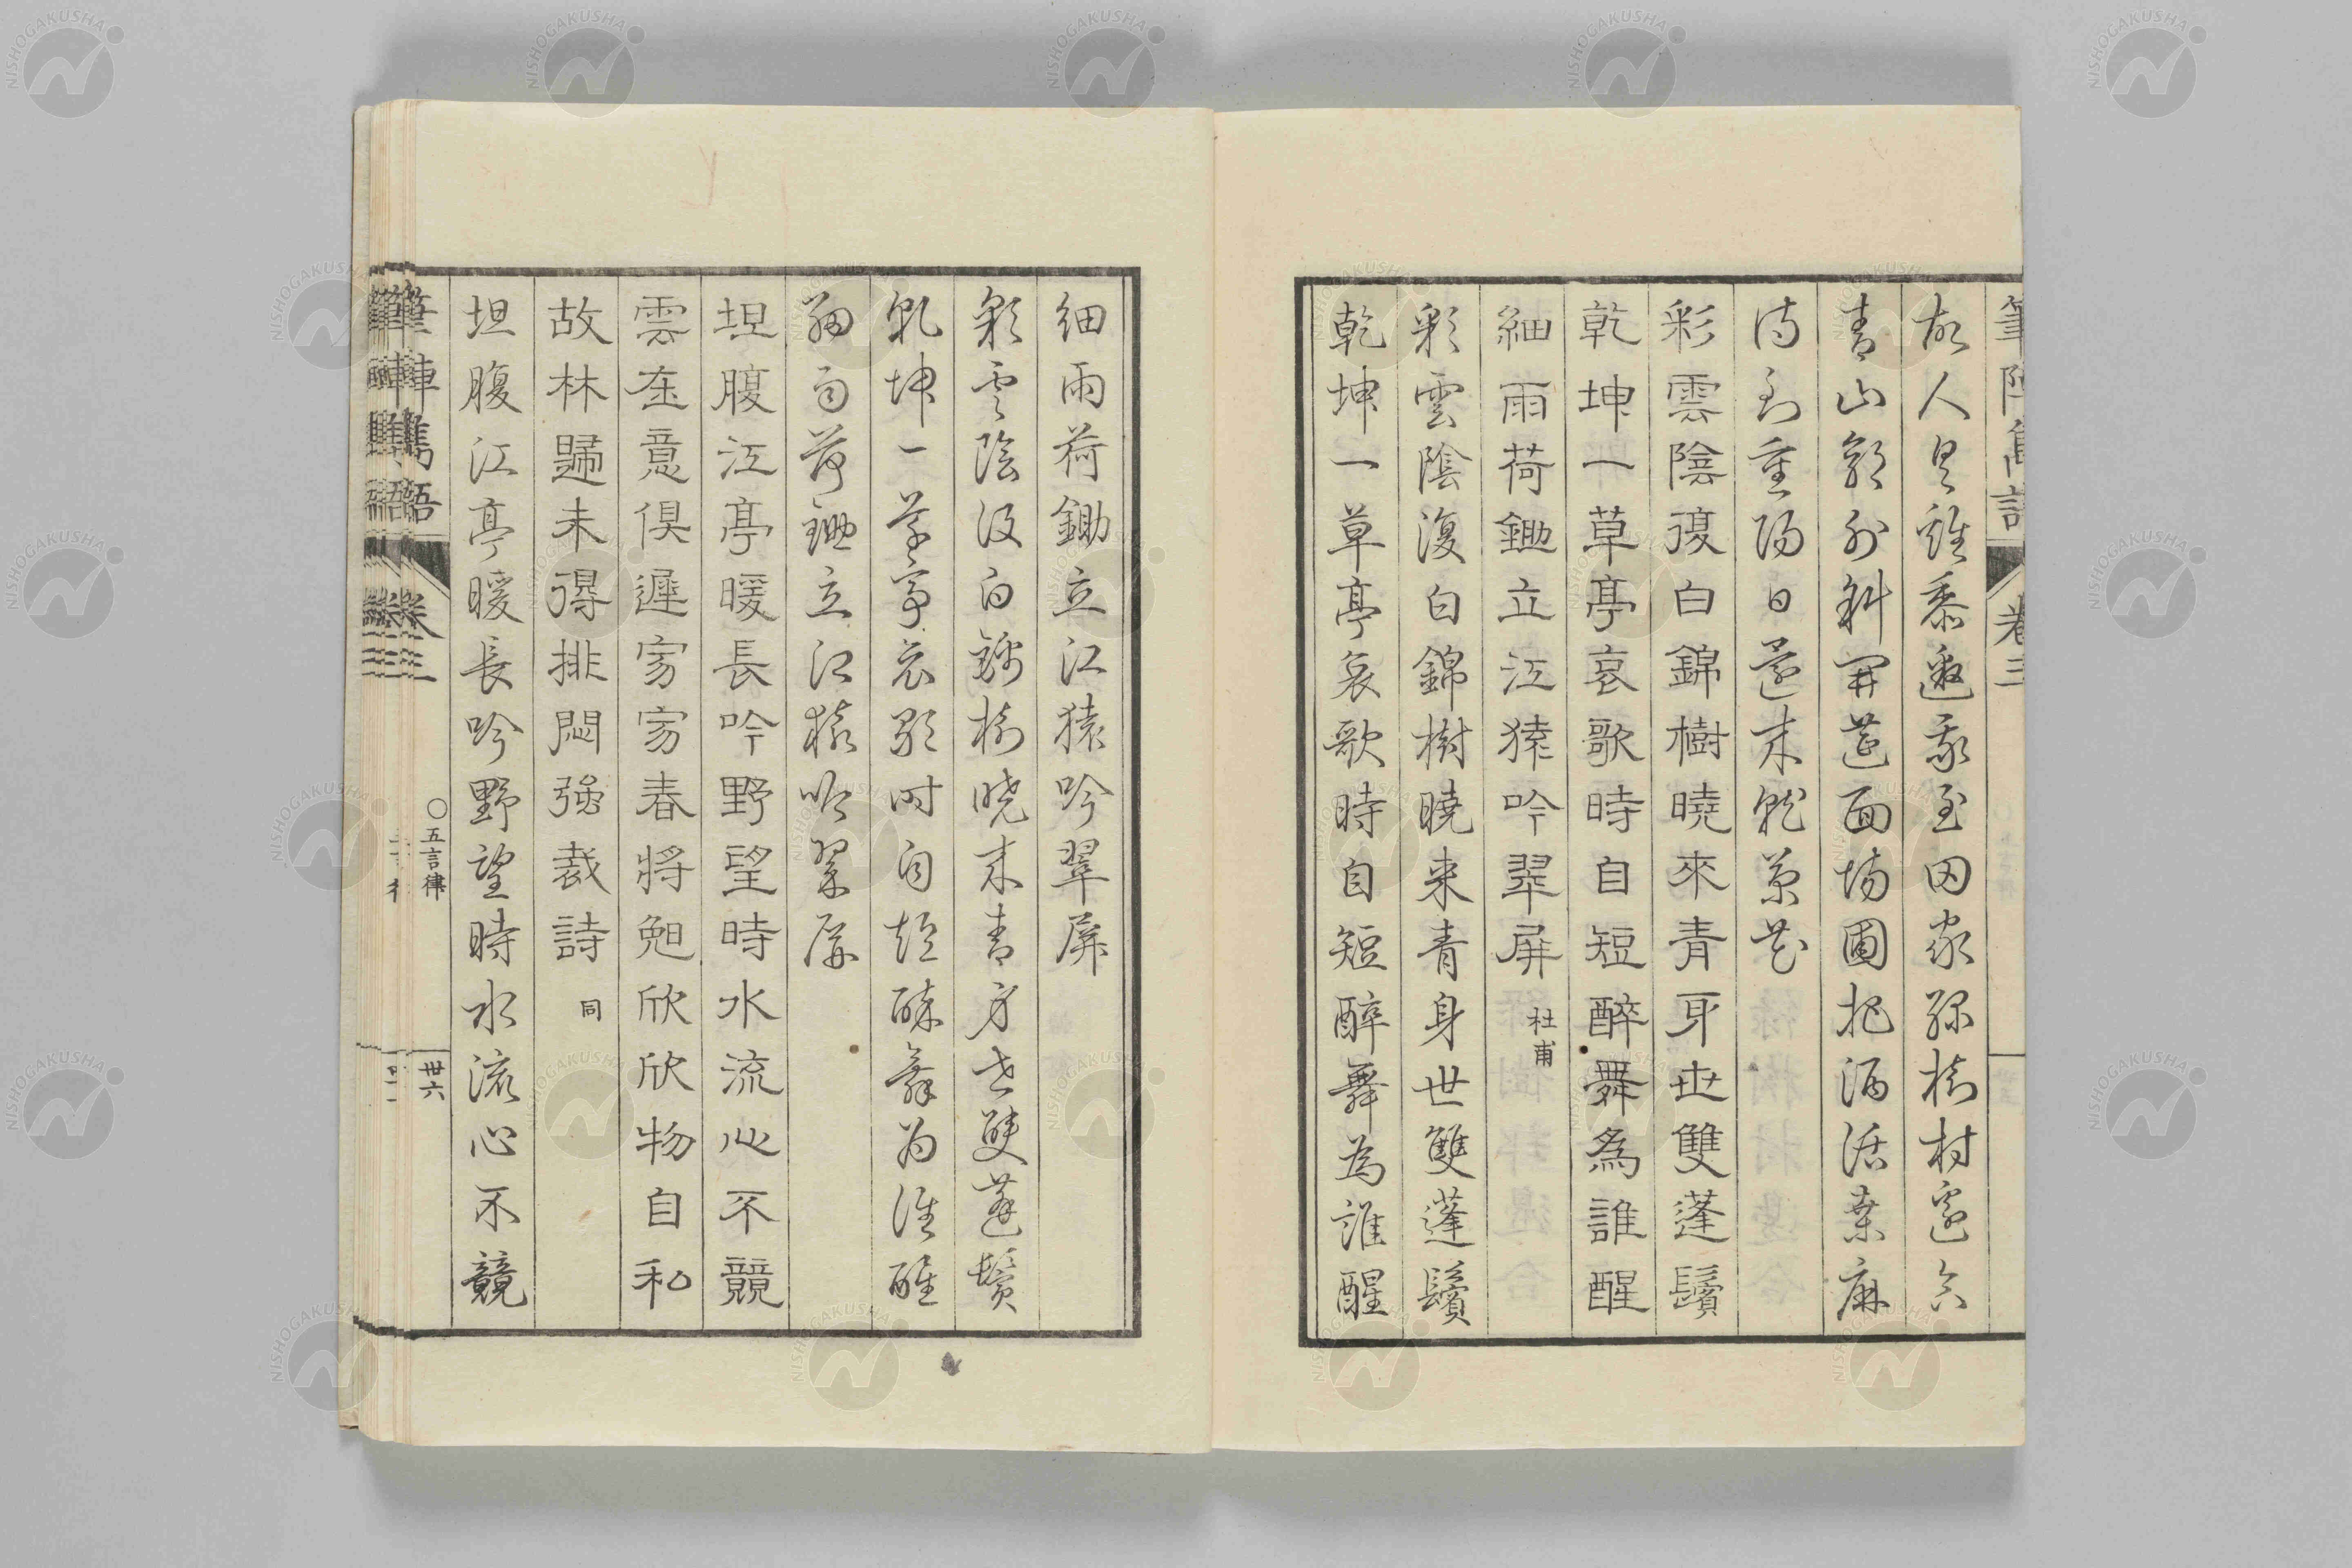 筆陣雋語
卷三
故人具雞黍邀我至田家綠樹村邊合
青山郭外斜開筵面場圃把酒話桑麻
待到重陽日還来就菊花
彩雲陰復白錦樹曉來青身世雙蓬鬢
乾坤一草亭哀歌時自短醉舞為誰醒
細雨荷鋤立江猿吟翠屏 杜甫
彩雲陰復白錦樹曉来青身世雙蓬鬢
乾坤一草亭哀歌時自短醉舞為誰醒
細雨荷鋤立江猿吟翠屏
彩雲陰復白錦樹曉来青身世雙蓬鬢
乾坤一草亭哀歌時自短醉舞為誰醒
細雨荷鋤立江猿吟翠屏
坦腹江亭暖長吟野望時水流心不競
雲在意俱遲寂寂春將晚欣欣物自私
故林歸未得排悶強裁詩 同
坦腹江亭暖長吟野望時水流心不競
筆陣雋語 卷三 ○五言律 卅六
NISHOGAKUSHA